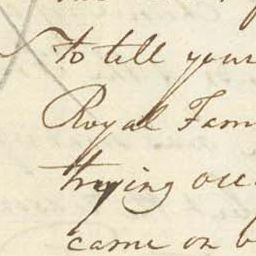 to tell your
Royal Fam
trying occ
came on b